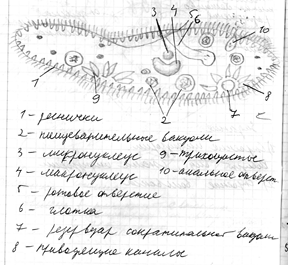 3 4 5 6
10
1
9
2
8
7
1 – реснички
2 – пищеварительные вакуоли
3 – микронуклеус 9 – трихоцисты
4 – макронуклеус 10 – анальное отверст
5 – ротовое отверстие
6 – глотка
7 – резервуар сократительной вакуоли
8 – приводящие каналы